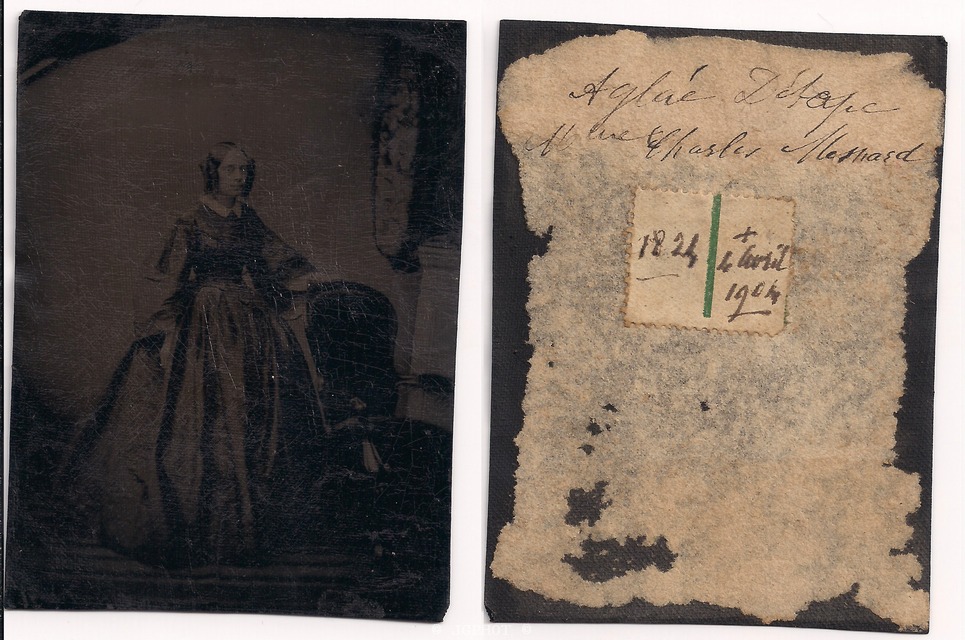 Aglaé Détape
Mme Charles Mesnard
1824
+
4 avril
1904